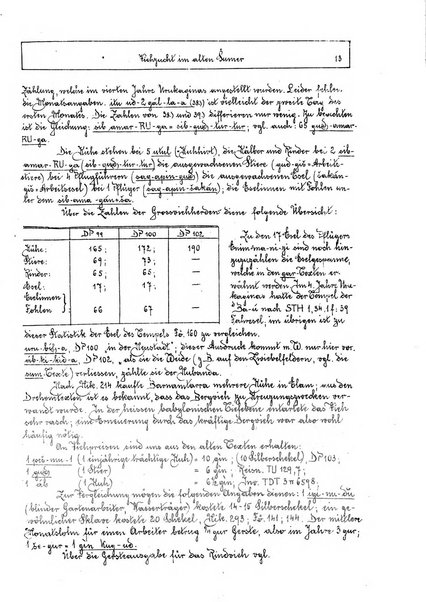 Viehzucht im alten Sumer 13
Zählung, welche im vierten Jahre Urukaginas angestellt wurden. Leider fehlen
die Monatsangaben. itu ud-2 gál-la-a (383) ist vielleicht der zweite Tag des
ersten Monates. Die Zahlen von 383 und 393 differieren nur wenig. Zu beachten
ist die Gleichung: sib amar-RU-ga = sib-gud-tur-tur; vgl. auch: 65 gud-amar-
RU-ga.
Die Kühe stehen bei 5 utul (Kuhhirt), die Kälber und Rinder bei 2 sib-
amar-RU-ga (sib-gud-tur-tur) die ausgewachsenen Stiere (gud-giš = Arbeits-
stiere) bei 4 Pflugführern (sag-apin-gud) die ausgewachsenen Esel
giš = Arbeitsesel) bei 1 Pflüger die Eselinnen mit Fohlen un-
ter dem sib-ama-gan-ša.
Über die Zahlen der Grossviehherden diene folgende Übersicht:
DP 99 DP 100 DP 102
Kühe: 165; 172; 190
Stiere: 69; 73; —
Rinder: 65; 65; —
Esel: 17; 17; —
Eselinnen
Fohlen 66 67
Zu den 17 Esel des Pflügers
Enim-ma-ni-zi sind noch hin-
zuzuzählen die Eselgespanne,
welche in den gar-Texten er-
wähnt werden. Im 4. Jahre Uru-
kaginas hatte der Tempel der
Ba-ú nach STH 1, 34, 1: 39
Fahresel, im übrigen ist zu
dieser Statistik der Esel des Tempels Fö. 160 zu vergleichen.
DP 100 „in der Neustadt"; dieser Ausdruck kommt m. W. nur hier vor.
DP 102, „als sie die Weide (z. B. auf den Zwiebelfeldern, vgl. die
sum-Texte) verliessen, zählte sie der Nubanda.
Nach Nik. 214 kaufte Barnamtarra mehrere Kühe in Elam; aus den
Drehemtexten ist es bekannt, dass das Bergvieh zu Kreuzungszwecken ver-
wandt wurde. In der heissen babylonischen Tiefebene entartete das Vieh
sehr rasch; und Erneuerung durch das kräftige Bergvieh war also wohl
häufig nötig.
An Viehpreisen sind uns aus den alten Texten erhalten:
(1 einjährige trächtige Kuh) = 10 gin; (10 Silberschekel) DP 103;
1 gud (1 Stier) = 6 gin; Reisn. TU 129, 7;
1 áb (1 Kuh) = 6 gin; Inv. TDT 3 n 6598;
Zur Vergleichung mögen die folgenden Angaben dienen: 1 igi-nu-du
(blinder Gartenarbeiter, Wasserträger) kostete 14-15 Silberschekel; ein ge-
wöhnlicher Sklave kostete 20 Schekel, Nik. 293; Fö. 141; 144. Der mittlere
Monatslohn für einen Arbeiter betrug Gerste, also im Jahre 3 gur;
1 še-gur = 1 gin kug-ud.
Über die Gersteausgabe für das Rindvieh vgl.